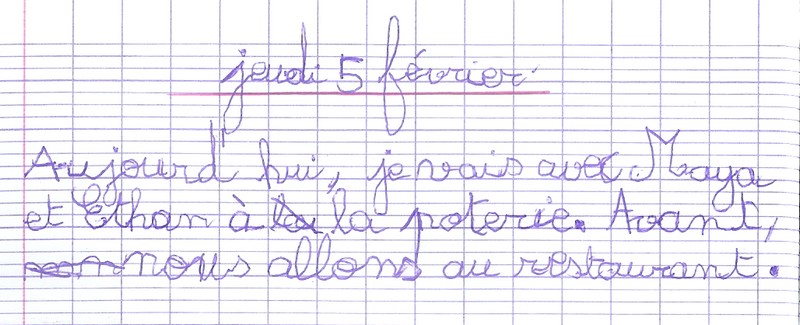 jeudi 5 février
Aujourd'hui, je vais avec Maya
et Ethan à la poterie. Avant,
nous allons au restaurant.